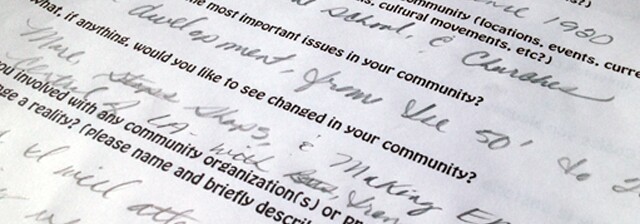 since 1980
community (locations, events, curre
s, cultural movements, etc?)
school, & Churches
he most important issues in your community?
development, from the 50' to
what, if anything, would you like to see changed in your community?
More, Shops, & Making
of LA- with from
ou involved with any community organization(s) or pr
ge a reality? (please name and briefly descri
I will att